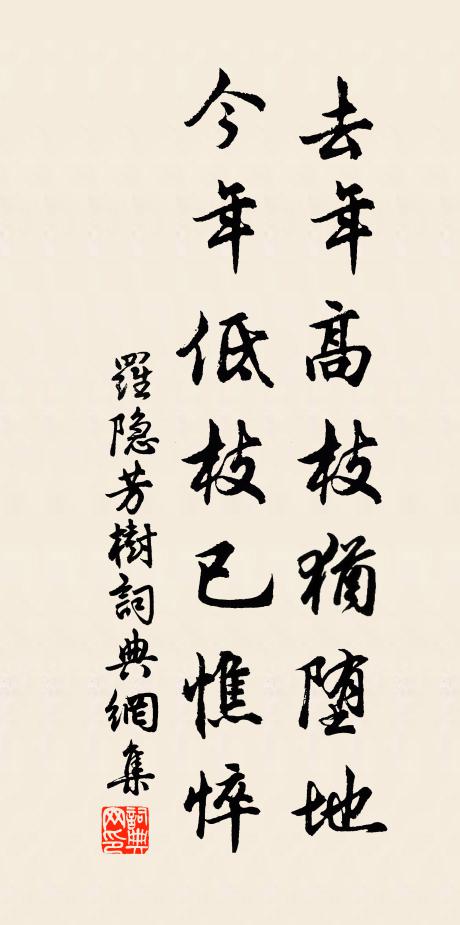 去年高枝猶堕地
今年低枝已憔悴
羅隐芳樹詞典網集
詞典網印